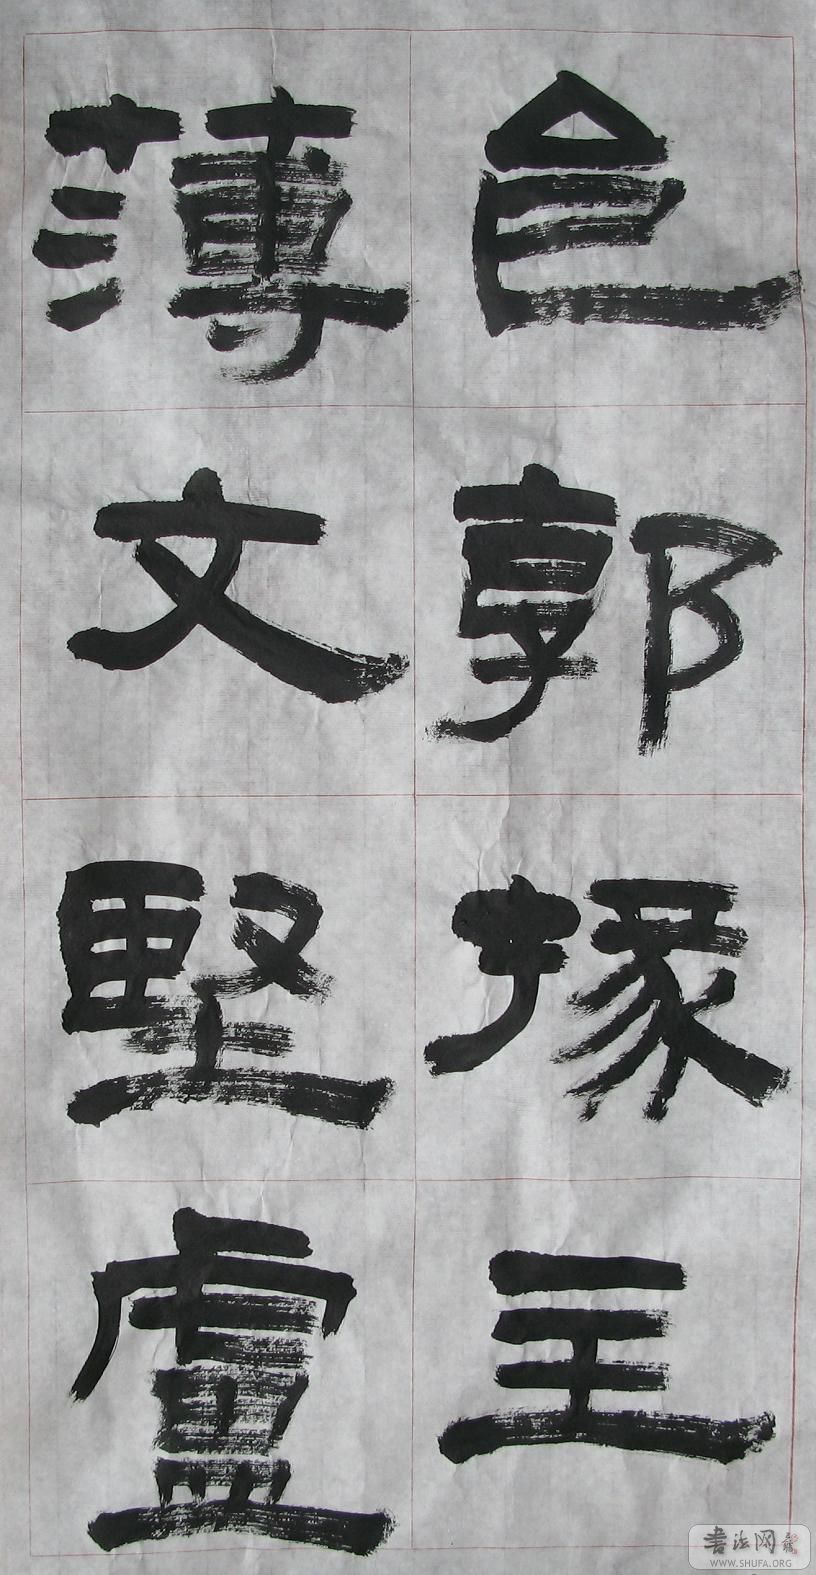 邑郭掾主
薄文堅盧
书法网
WWW.SHUFA.ORG